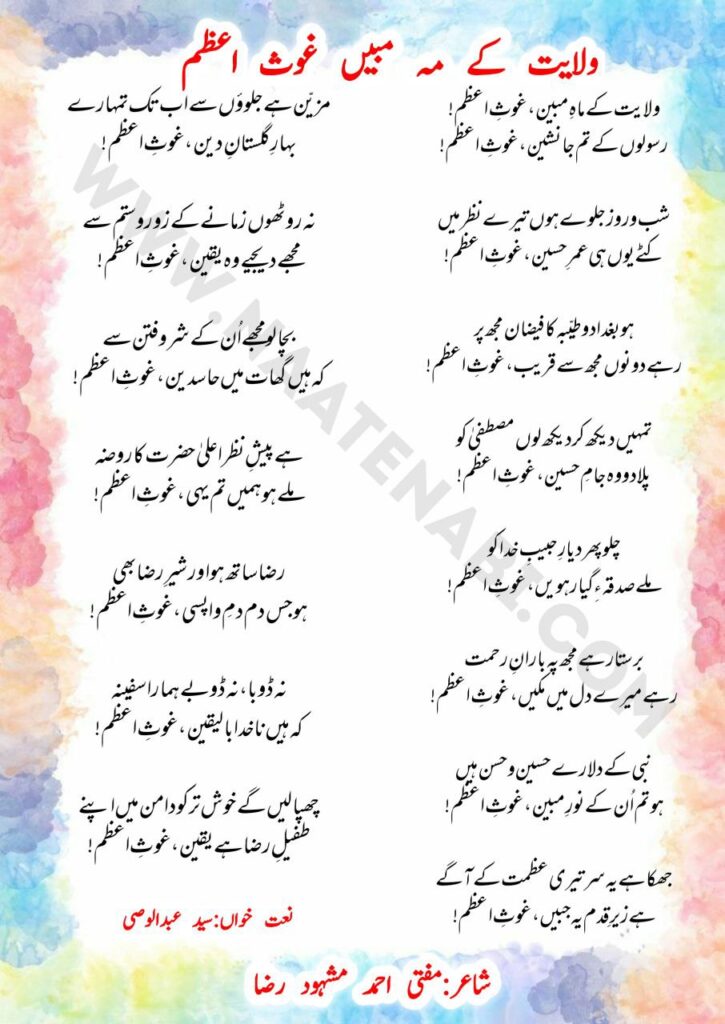 ولایت کے مہ مبیں غوث اعظم
ولایت کے ماہِ مبین، غوثِ اعظم!
رسولوں کے تم جانشین، غوثِ اعظم!
شب و روز جلوے ہوں تیرے نظر میں
کٹے یوں ہی عمرِ حسین، غوثِ اعظم!
ہو بغداد و طیّبہ کا فیضان مجھ پر
رہے دونوں مجھ سے قریب، غوثِ اعظم!
تمہیں دیکھ کر دیکھ لوں مصطفیٰ کو
پلا دو وہ جامِ حسین، غوثِ اعظم!
چلو پھر دیارِ حبیبِ خدا کو
ملے صدقہءِ گیارہویں، غوثِ اعظم!
برستا رہے مجھ پہ بارانِ رحمت
رہے میرے دل میں مکیں، غوثِ اعظم!
نبی کے دلارے حسین و حسن ہیں
ہو تم اُن کے نورِ مبین، غوثِ اعظم!
جھکا ہے یہ سر تیری عظمت کے آگے
ہے زیرِ قدم یہ جبیں، غوثِ اعظم!
مزیّن ہے جلوؤں سے اب تک تمہارے
بہارِ گلستانِ دین، غوثِ اعظم!
نہ روٹھوں زمانے کے زور و ستم سے
مجھے دیجیے وہ یقین، غوثِ اعظم!
بچا لو مجھے اُن کے شر و فتن سے
کہ ہیں گھات میں حاسدین، غوثِ اعظم!
ہے پیشِ نظر اعلیٰ حضرت کا روضہ
ملے ہو ہمیں تم یہی، غوثِ اعظم!
رضا ساتھ ہو اور شیرِ رضا بھی
ہو جس دم دمِ واپسی، غوثِ اعظم!
نہ ڈوبا، نہ ڈوبے ہمارا سفینہ
کہ ہیں ناخدا بالیقین، غوثِ اعظم!
چھپا لیں گے خوش تر کو دامن میں اپنے
طفیلِ رضا ہے یقین، غوثِ اعظم!
نعت خواں:سید عبدالوصی
شاعر:مفتی احمد مشہود رضا
WWW.NAATENABI.COM